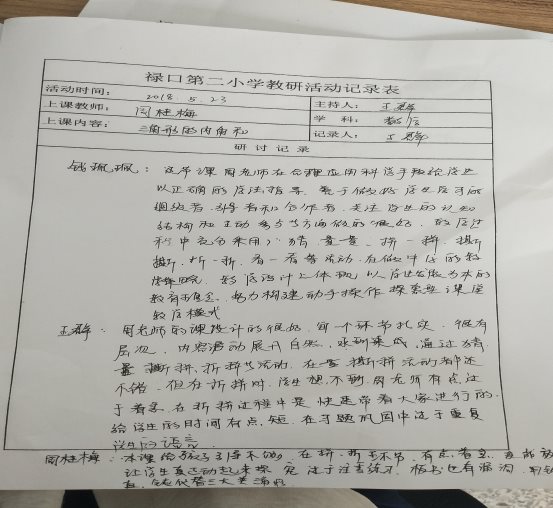 禄口第二小学教研活动记录表
活动时间: 2018.5.23 主持人: 王群
上课教师: 周桂梅 学 科: 数学
上课内容: 三角形的内角和 记录人: 王群
研 讨 记 录
钱珮珮: 这节课周老师在合理应用科学手段给学生
以正确的学法指导, 善于做好学生学习的
组织者、引导者和合作者, 关注学生的认知
结构和主动参与方面做的很好, 教学过
程中充分采用了猜、量一量、拼一拼、撕
撕、折一折、看一看等活动, 在做中学的教
教学设计上体现了以学生发展为本的
教育理念, 努力构建动手操作探索型课堂
教学模式
王群: 周老师的课设计的很好, 每一个环节扎实, 很有
层次, 内容活动展开自然, 水到渠成, 通过猜
量 撕拼、折拼等活动, 在量 撕拼活动都还
不错, 但在折拼时, 学生想不到, 周老师有点过
于着急, 在折拼过程中是快速带着大家进行的,
给学生的时间有点短, 在习题巩固中过于重复
学生的语言.
周桂梅: 本课给孩子引导不够, 在拼、折环节, 有点着急,
让学生真正动起来探究 过于注重练习, 板书也有漏洞,